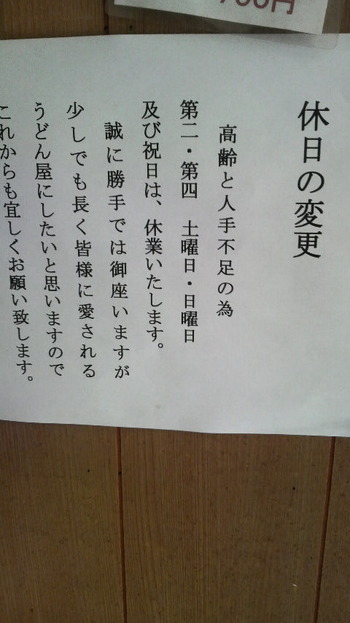 00円
休日の変更
高齢と人手不足の為
第二・第四　土曜日・日曜日
及び祝日は、休業いたします。
誠に勝手では御座いますが
少しでも長く皆様に愛される
うどん屋にしたいと思いますので
これからも宜しくお願い致します。